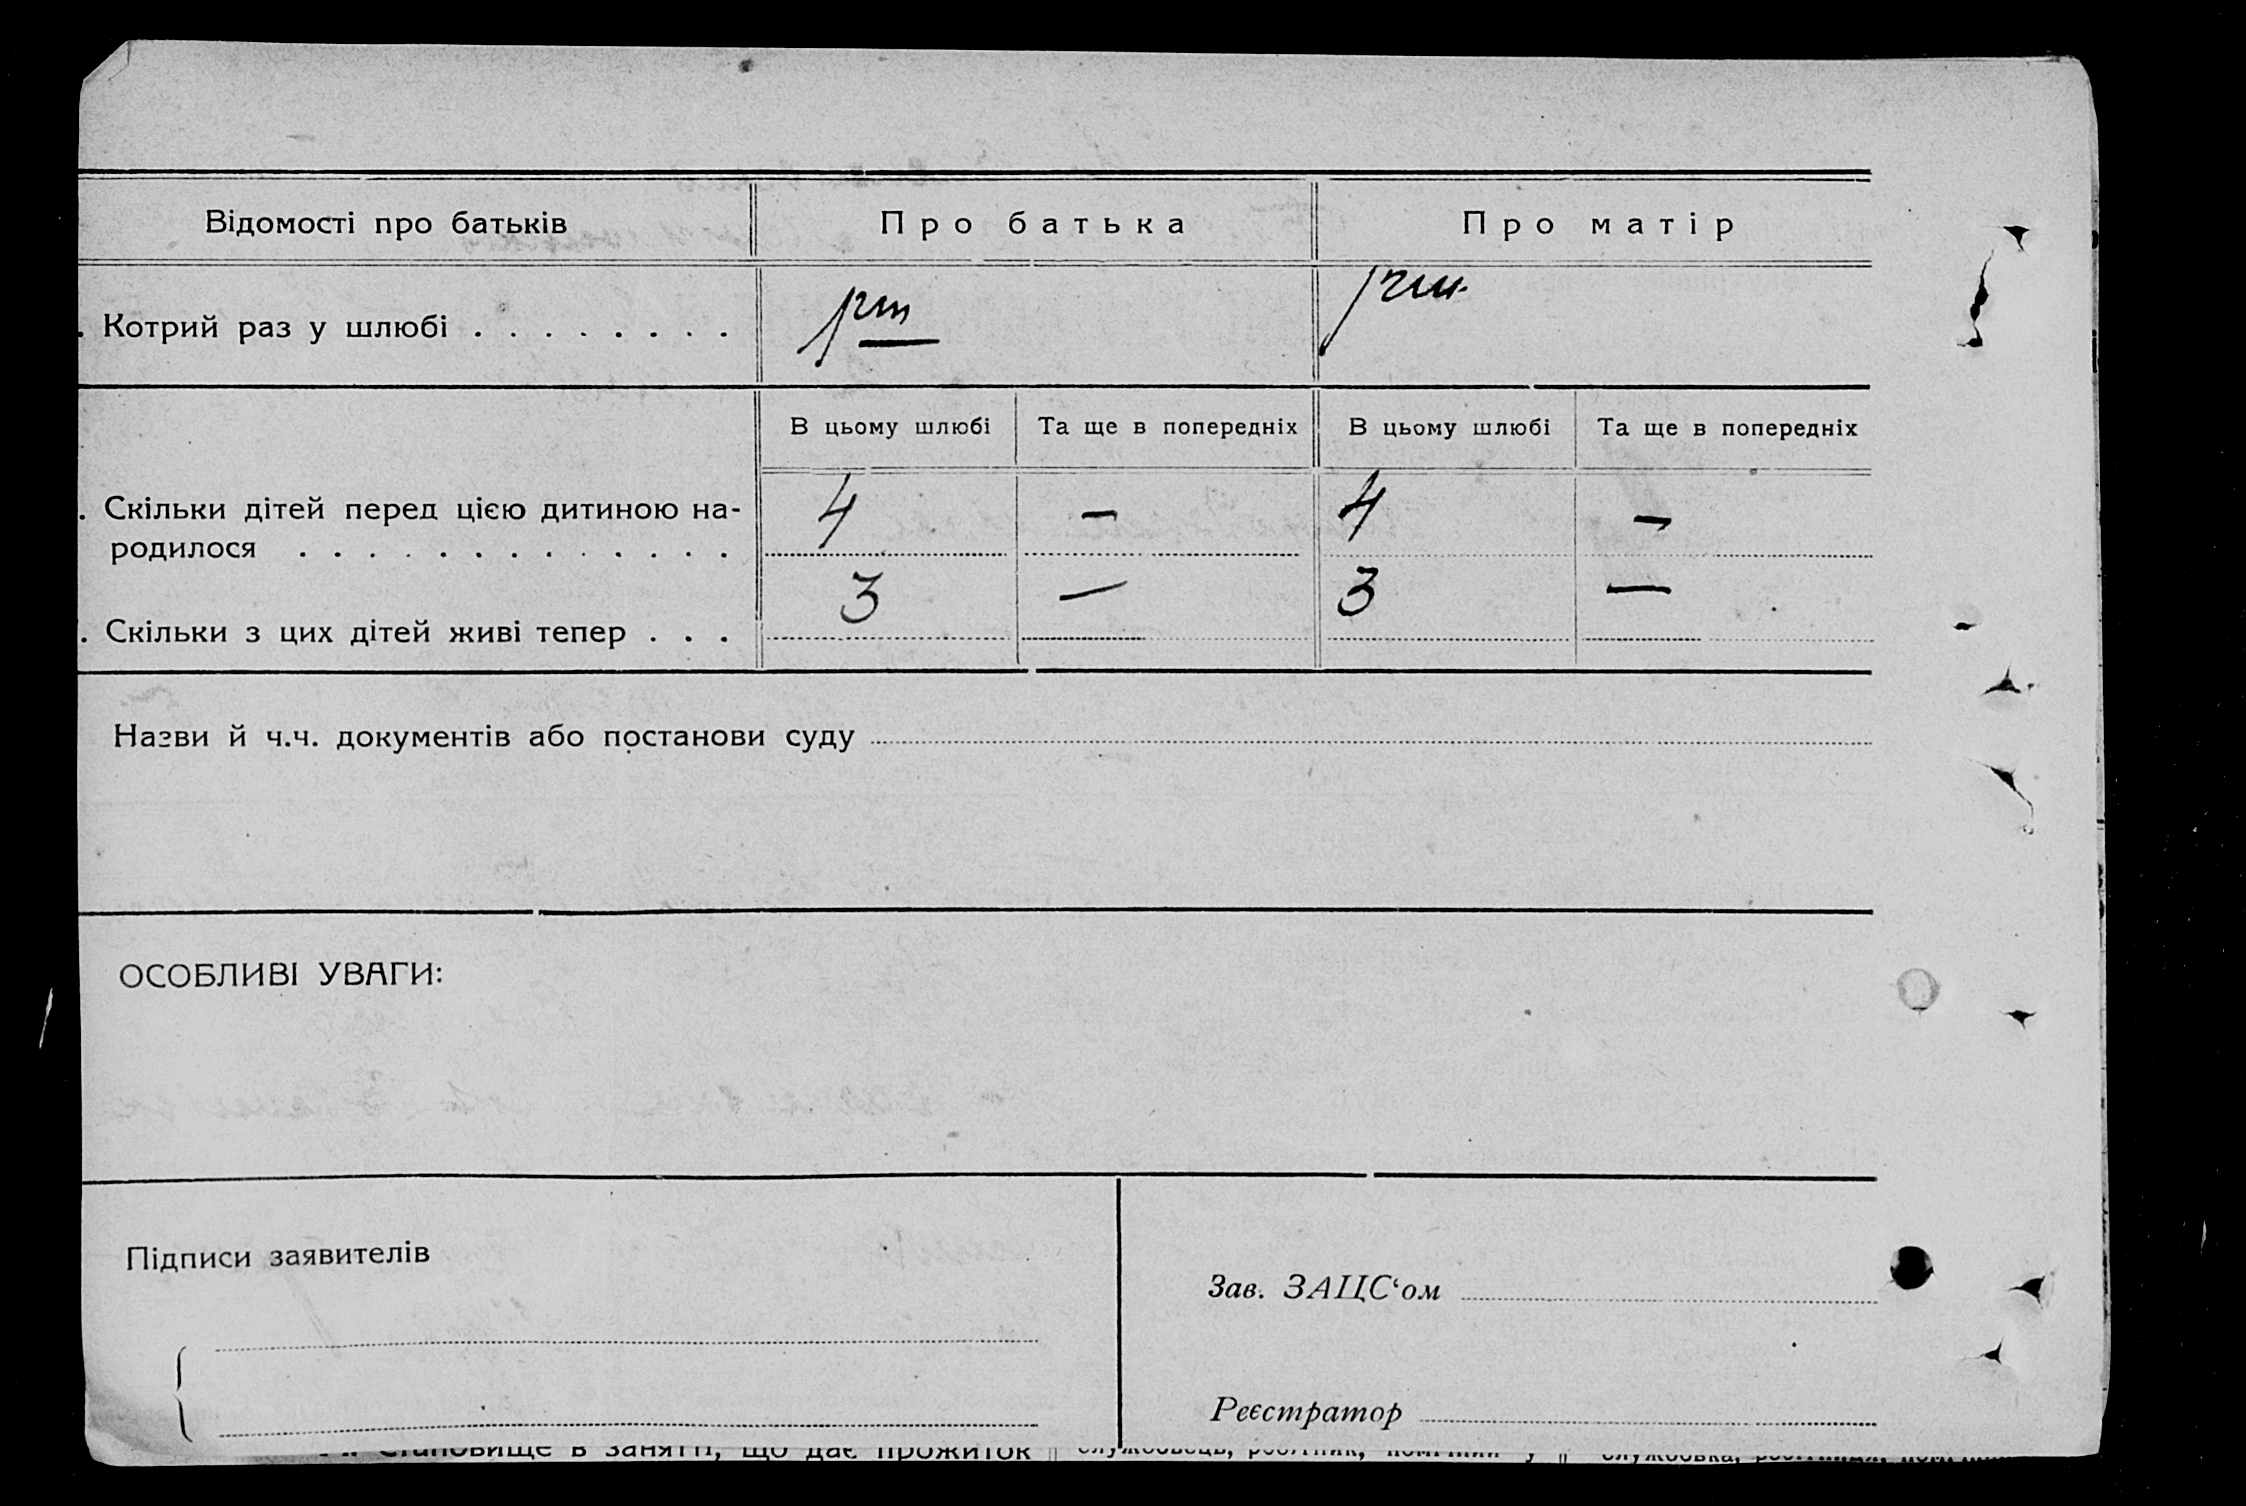 Відомості про батьків Про батька Про матір
. Котрий раз у шлюбі . . . . . . . .
В цьому шлюбі Та ще в попередніх В цьому шлюбі Та ще в попередніх
. Скільки дітей перед цією дитиною на-
родилося . . . . . . . . . . . . . 4 — 4 —
. Скільки з цих дітей живі тепер . . . 3 — 3 —
Назви й ч.ч. документів або постанови суду
ОСОБЛИВІ УВАГИ:
Підписи заявителів
Зав. ЗАЦС‘ом
Реєстратор
Становище в занятті, що дає прожиток службовець, робітник,